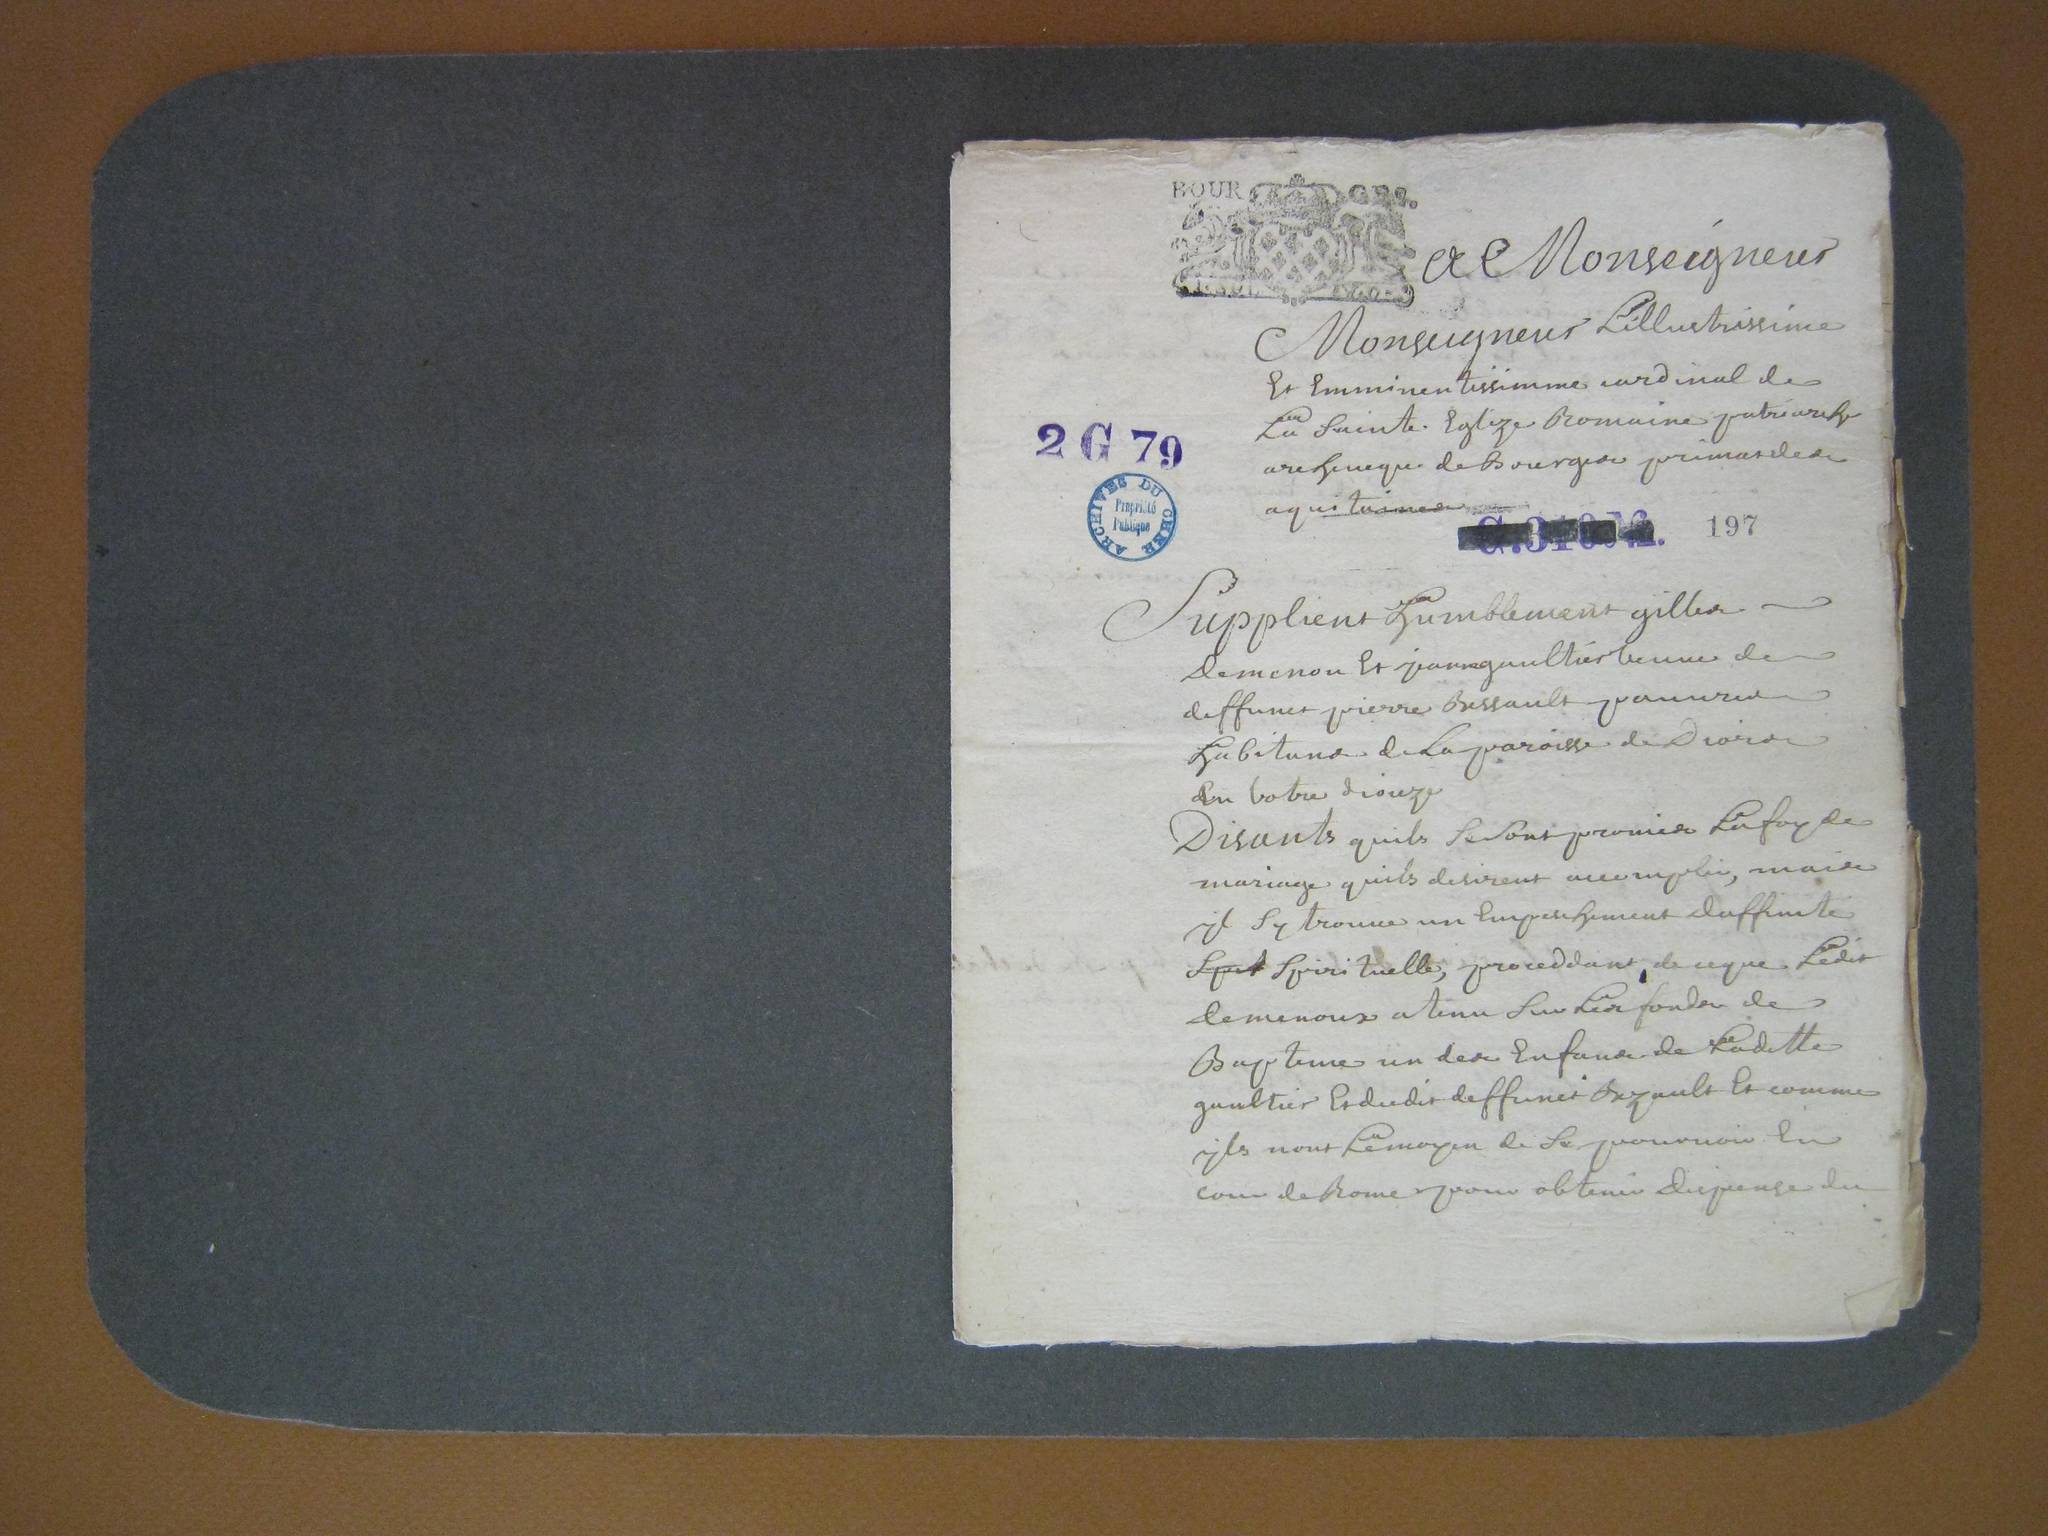 BOUR GES.
A Monseigneur
Monseigneur L'illustrissime
Et Emminentissimme cardinal de
La Sainte Eglize Romaine patriarche
archeueque de Bourges primat des
aquitaines
2 G 79
ARCHIVES DU CHER
Propriété
Publique
197
Supplient humblement gilles
demenou Et janne gaultier veuue de
deffunct pierre Bessault pauures
habitans de La paroisse de Diors
En votre dioceze
Disants quils Se sont promis La foy de
mariage quils desirent accomplir, mais
jl Sy trouue un Empeschement daffinité
Spirituelle, proceddant de ceque Ledit
demenoux a tenu Sur Les fonds de
Bapteme un des Enfans de Laditte
gaultier Et dudit deffunct Bezault Et comme
jls nont Le moyen de Se pouruoir En
cour de Rome pour obtenir dispense du